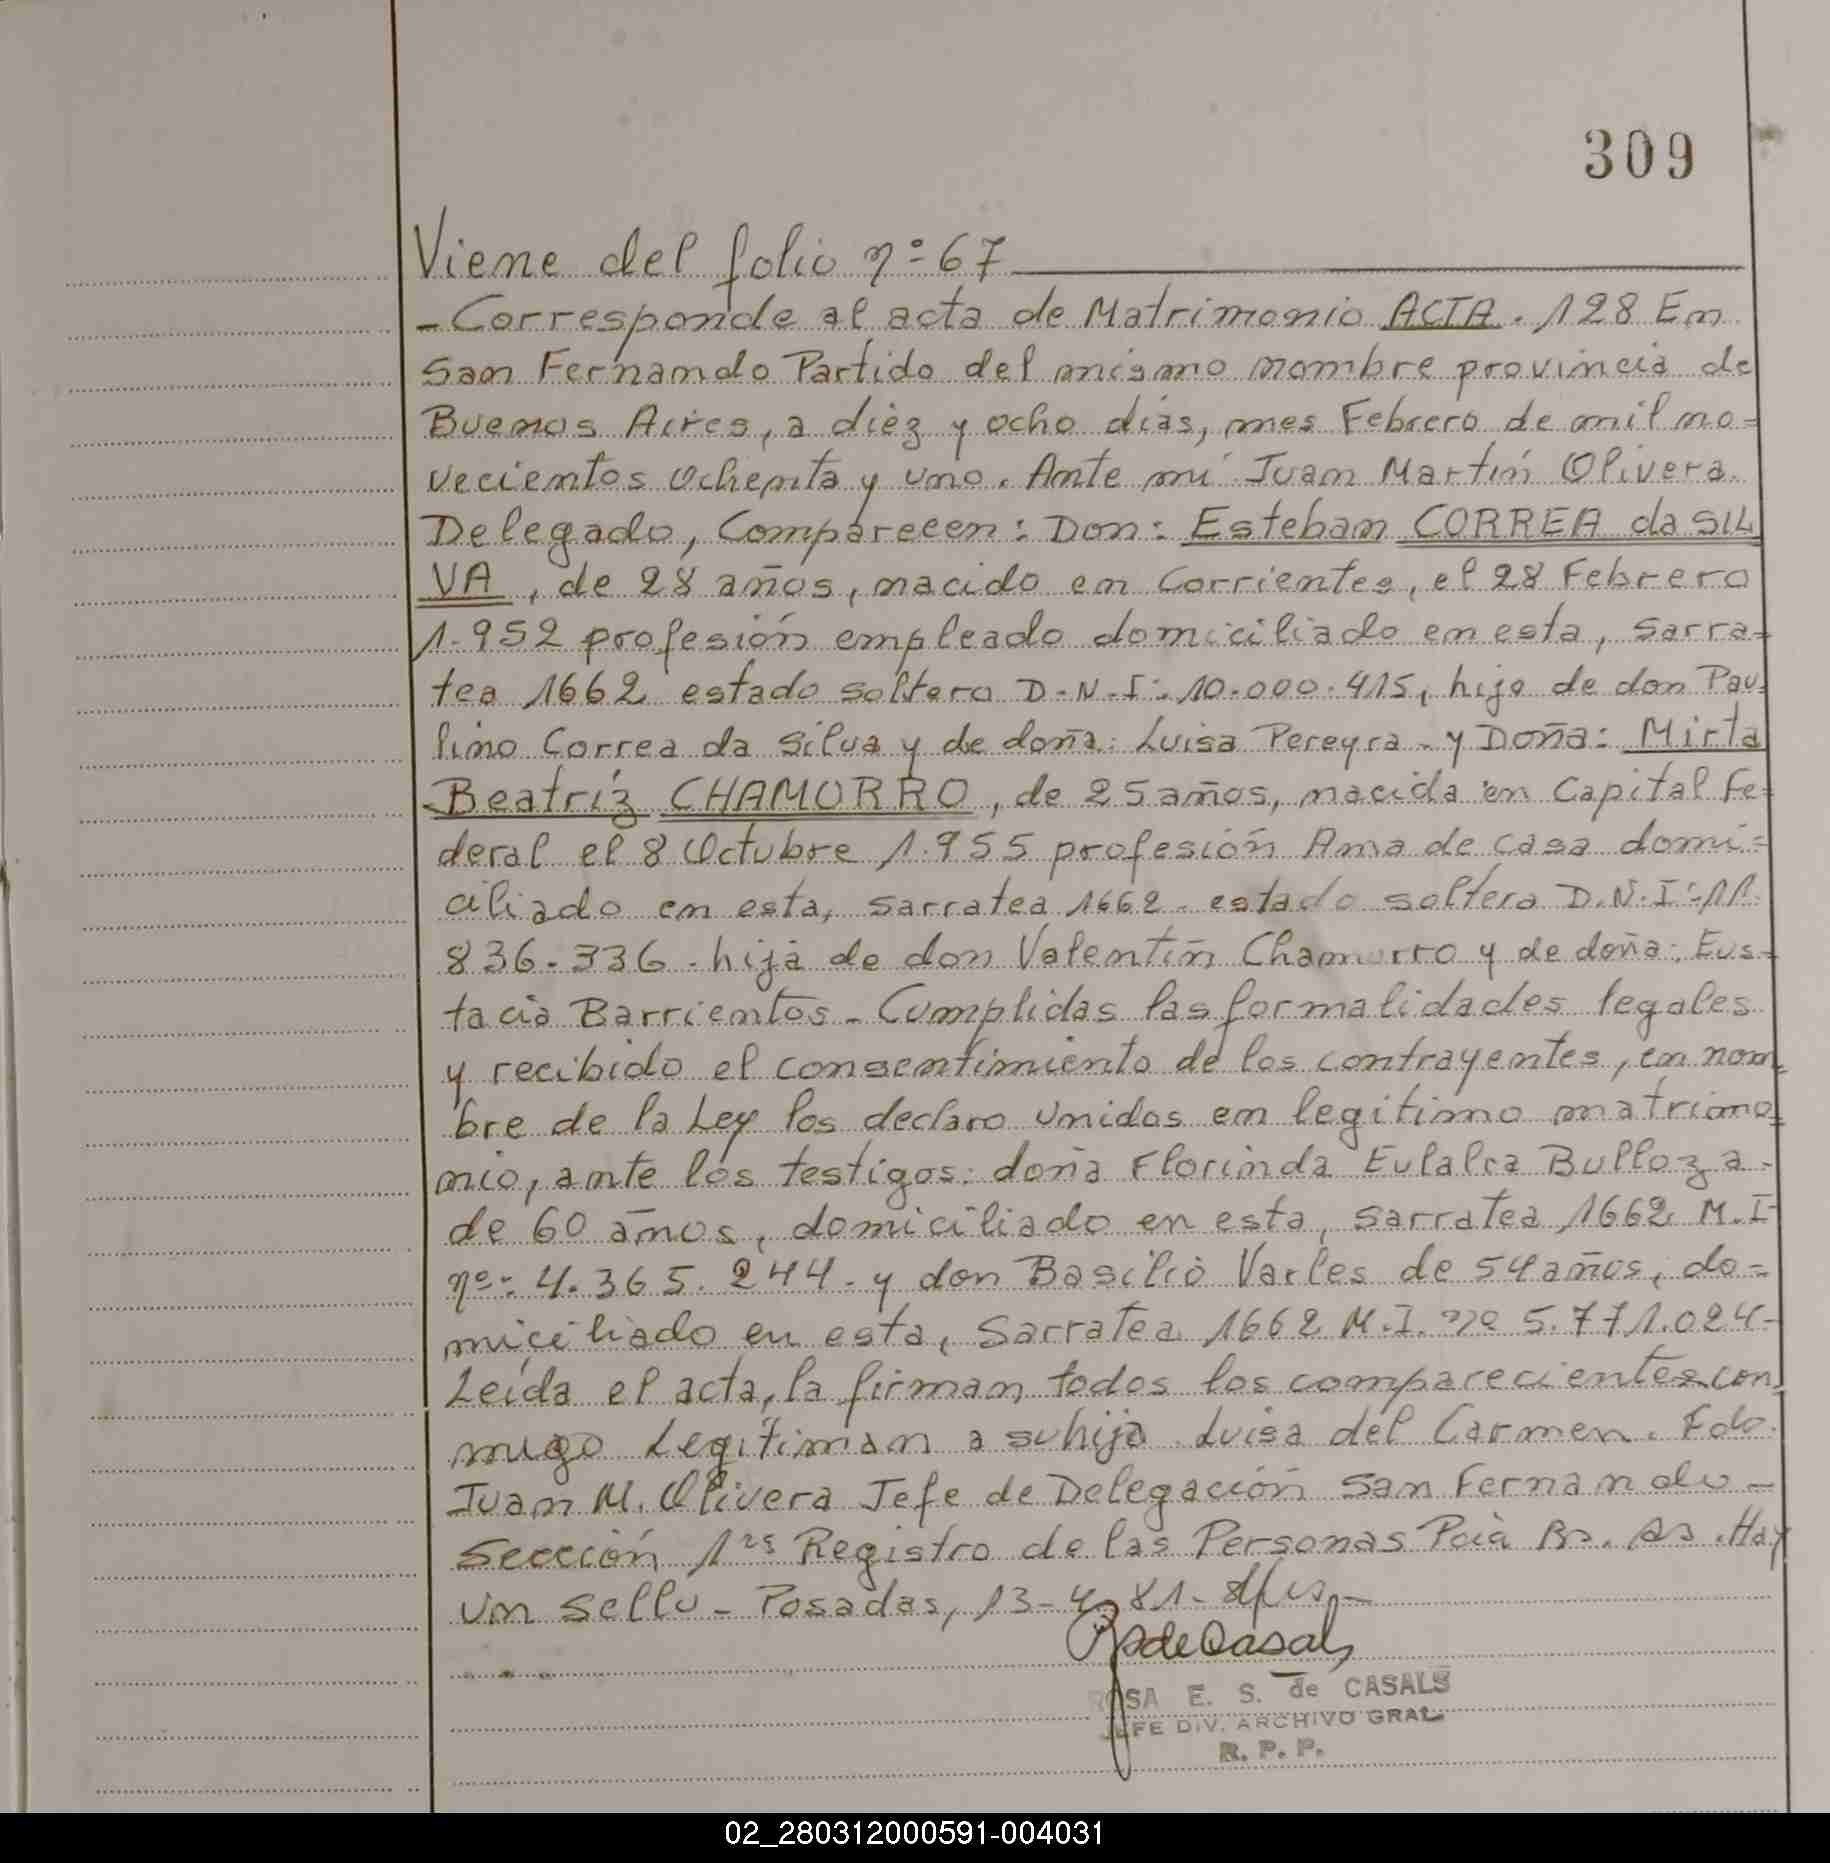 309
Viene del folio nº 67
- Corresponde al acta de Matrimonio ACTA. 128 En
San Fernando Partido del mismo nombre provincia de
Buenos Aires, a diez y ocho días, mes Febrero de mil no=
vecientos ochenta y uno. Ante mí Juan Martín Olivera
Delegado, Comparecen: Don: Esteban CORREA da SIL
VA, de 28 años, nacido en Corrientes, el 28 Febrero
1.952 profesión empleado domiciliado en esta, Sarra=
tea 1662 estado soltero D.N.I: 10.000.415, hijo de don Pau=
lino Correa da Silva y de doña: Luisa Pereyra - y Doña: Mirta
Beatríz CHAMORRO, de 25 años, nacida en Capital Fe=
deral el 8 Octubre 1.955 profesión Ama de casa domi=
ciliado en esta, Sarratea 1662 - estado soltera D.N.I: 11.
836.336 - hija de don Valentín Chamorro y de doña: Eus=
tacia Barrientos - Cumplidas las formalidades legales
y recibido el consentimiento de los contrayentes, en nom=
bre de la Ley los declaro unidos en legítimo matrimo=
nio, ante los testigos: doña Florinda Eulalia Bulloza -
de 60 años, domiciliado en esta, Sarratea 1662 M.I
nº: 4.365.244 - y don Basilio Varles de 54 años, do=
miciliado en esta, Sarratea 1662 M.I. nº 5.771.024 -
Leída el acta, la firman todos los comparecientes con
migo Legitiman a su hija Luisa del Carmen. Fdo.
Juan M. Olivera Jefe de Delegación San Fernando -
Sección 1ra Registro de las Personas Pcia Bs. As. Hay
un sello - Posadas, 13-4-81 -
de Casals
ROSA E. S. de CASALS
JEFE DIV. ARCHIVO GRAL
R. P. P.
02_280312000591-004031